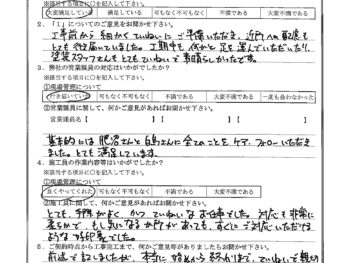 ※該当する項目に○を記入して下さい。
大変満足している 満足している 可もなく不可もなく 不満である 大変不満である
2.「1」についてのご意見をお聞かせ下さい。
工事前から細かくていねいにご準備いただき、近所への配慮も
とても行き届いていました。工期中も何かと足を運んでいただいたり、
塗装スタッフさんもとてもていねいで素晴らしかったです。
3. 弊社の営業職員の対応はいかがでしたか?
※該当する項目に○を記入して下さい。
①現場管理について
行き届いている 可もなく不可もなく 不満である 大変不満である 一度も会わなかった
②営業職員に関して、何かご意見があればお聞かせ下さい。
営業職員名【 】【 】【 】
基本的には肥沼さんと白鳥さんに全てのことをケア、フォローいただき
ました。とても満足しています。
4. 施工員の作業内容等はいかがでしたか?
※該当する項目に○を記入して下さい。
①現場管理について
良くやってくれた 可もなく不可もなく 不満である 大変不満である
②施工員に関して、何かご意見があればお聞かせ下さい。
とても、手際がよく、かつていねいなお仕事でした。対応も非常に
柔らかで、もし気になる か所があっても、すぐにご対応いただける
ような好印象でした。
5. ご契約時点から工事完工まで、何かご意見等がありましたらお聞かせ下さい。
前述で記しましたが、本当に始めから終わりまで、ていねいで親切